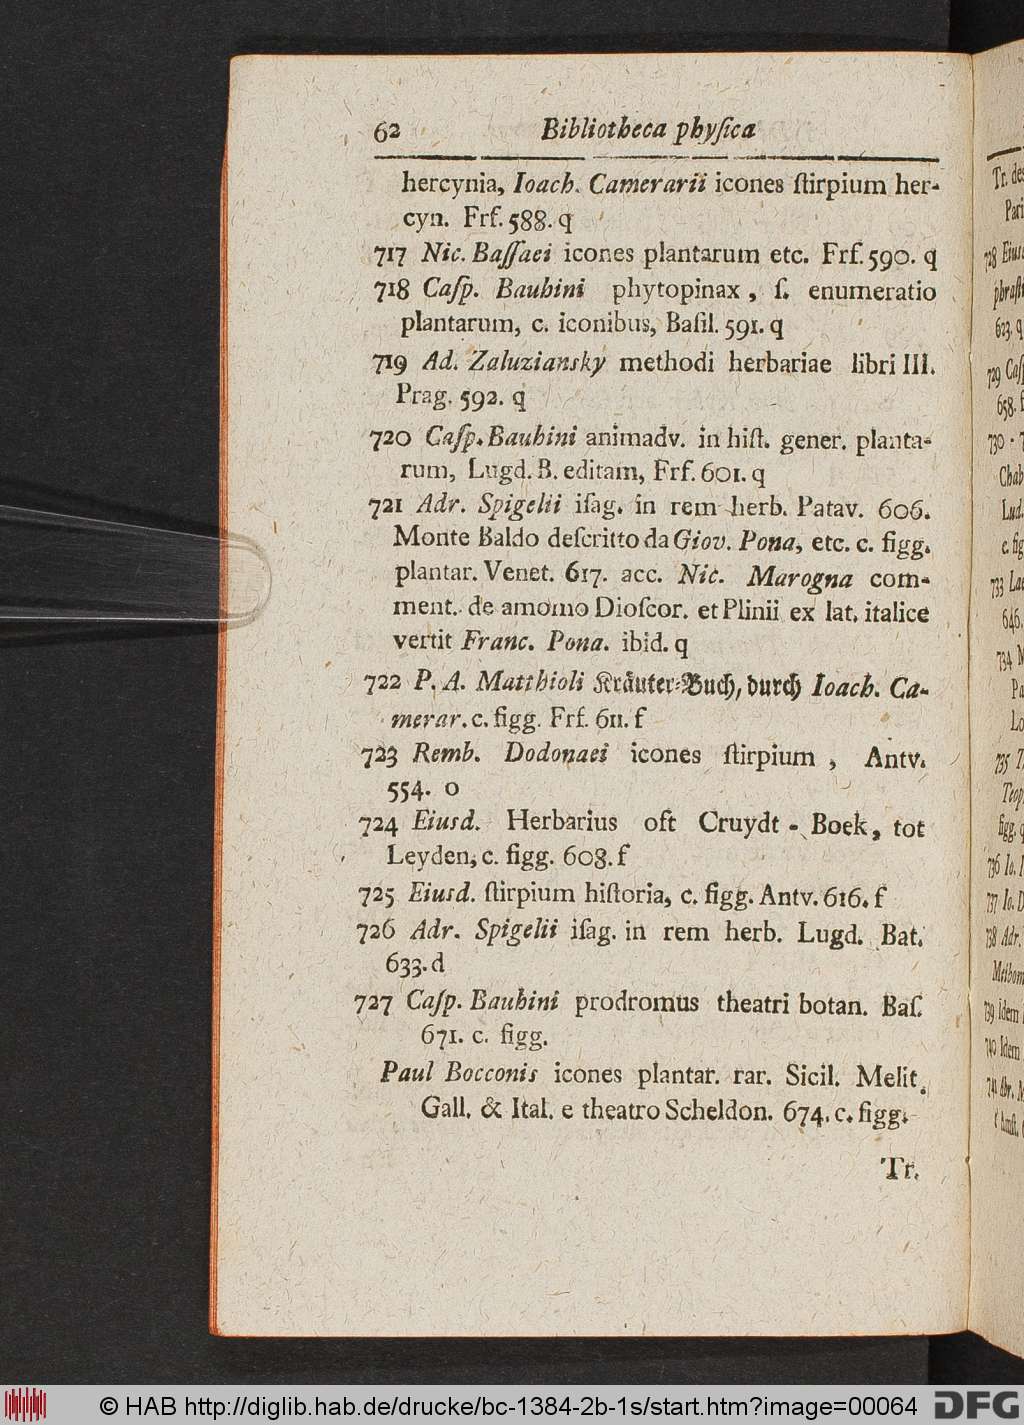 62 Bibliotheca phyſica
hercynia, Ioach. Camerarii icones ſtirpium her-
cyn. Frf. 588. q
717 Nic. Baſſaei icones plantarum etc. Frf. 590. q
718 Caſp. Bauhini phytopinax, ſ. enumeratio
plantarum, c. iconibus, Baſil. 591. q
719 Ad. Zaluziansky methodi herbariae libri III.
Prag. 592. q
720 Caſp. Bauhini animadv. in hiſt. gener. planta-
rum, Lugd. B. editam, Frf. 601. q
721 Adr. Spigelii iſag. in rem herb. Patav. 606.
Monte Baldo deſcritto da Giov. Pona, etc. c. figg.
plantar. Venet. 617. acc. Nic. Marogna com-
ment. de amomo Dioſcor. et Plinii ex lat. italice
vertit Franc. Pona. ibid. q
722 P. A. Matthioli Kräuter-Buch, durch Ioach. Ca-
merar. c. figg. Frf. 611. f
723 Remb. Dodonaei icones ſtirpium, Antv.
554. o
724 Eiusd. Herbarius oft Cruydt-Boek, tot
Leyden, c. figg. 608. f
725 Eiusd. ſtirpium hiſtoria, c. figg. Antv. 616. f
726 Adr. Spigelii iſag. in rem herb. Lugd. Bat.
633. d
727 Caſp. Bauhini prodromus theatri botan. Baſ.
671. c. figg.
Paul Bocconis icones plantar. rar. Sicil. Melit.
Gall. & Ital. e theatro Scheldon. 674. c. figg.
Tr.
Tr. des
Pari
728 Eius
phraſt
623. q
729 Caſp
658. f
730 - 7
Chab
Lud.
c. fig
733 Lae
646.
734 M
Pa
Lo
735 T
Teop
figg. q
736 Io. 
737 Io. D
738 Adr.
Methom
739 Idem
740 Idem
741 Abr. M
© HAB http://diglib.hab.de/drucke/bc-1384-2b-1s/start.htm?image=00064
DFG